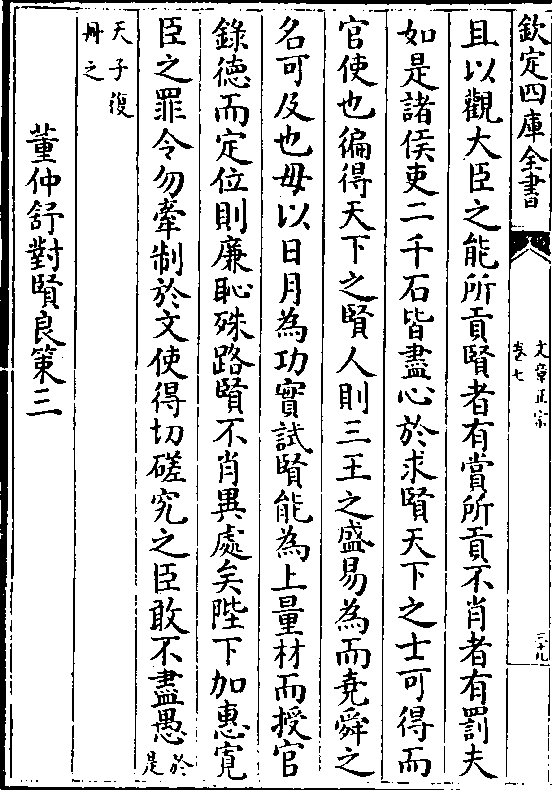 欽定四庫全書
文章正宗
卷七
三十九
且以觀大臣之能所貢賢者有賞所貢不肖者有罰夫
如是諸侯吏二千石皆盡心於求賢天下之士可得而
官使也徧得天下之賢人則三王之盛易為而堯舜之
名可及也毋以日月為功實試賢能為上量材而授官
錄德而定位則廉恥殊路賢不肖異處矣陛下加惠寛
臣之罪令勿牽制於文使得切磋究之臣敢不盡愚於是
天子復
冊之
董仲舒對賢良策三